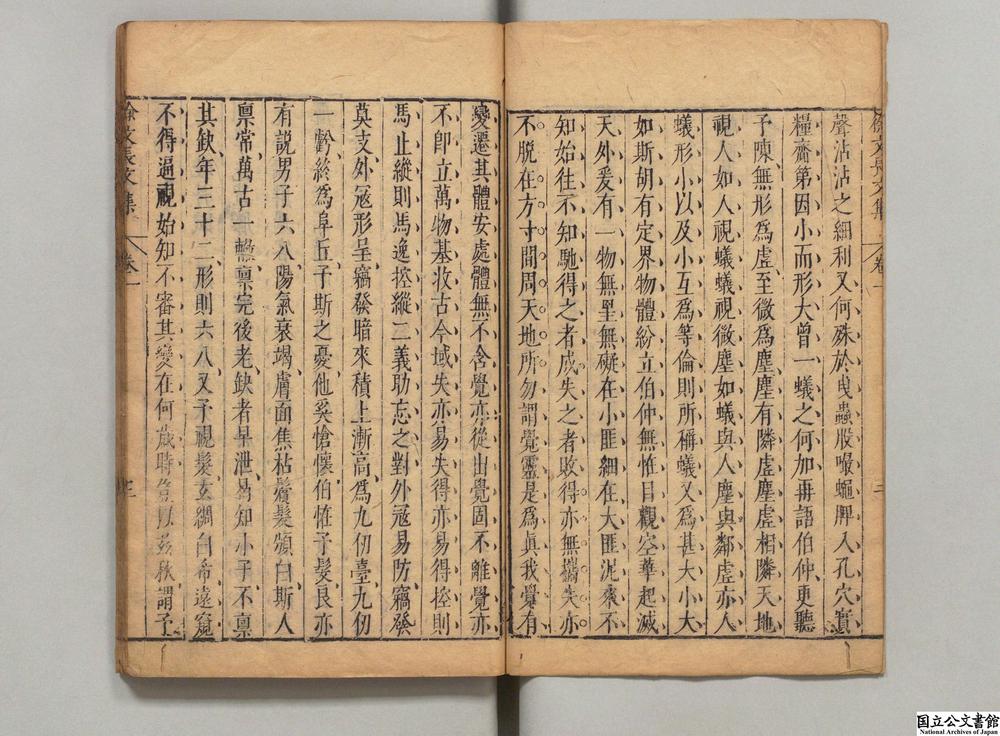 聲沾沾之細利又何殊於曵蟲股啣蠅胛入孔穴實
糧齋第因小而形大曾一蟻之何加再語伯仲更聽
予陳無形爲虛至微爲塵塵有隣虛塵虛相隣天地
視人如人視蟻蟻視微塵如蟻與人塵與鄰虛亦人
蟻形小以及小互爲等倫則所稱蟻又爲甚大小大
如斯胡有定界物體紛立伯仲無恠目觀空華起滅
天外爰有一物無罣無礙在小匪細在大匪泥來不
知始往不知馳得之者成失之者敗得亦無攜失亦
不脫在方寸間周天地所勿謂覺靈是爲眞我覺有
徐文長文集 卷一 二
變遷其體安處體無不舍覺亦從出覺固不離覺亦
不卽立萬物基收古今域失亦易失得亦易得控則
馬止縱則馬逸控縱二義助忘之對外寇易防竊發
莫支外寇形呈竊發暗來積上漸高爲九仞臺九仞
一虧終爲阜丘予斯之憂他奚愴懷伯恠予髮艮亦
有說男子六八陽氣衰竭膚面焦枯鬢髮頒白斯人
稟常萬古一轍稟完後老缺者早泄曷知小子不稟
其欽年三十二形則六八又予視髮玄綢白希遠窺
不得逼視始知不審其變在何歲時 茲秋謂予
徐文長文集 卷一 三
国立公文書館
National Archives of Japan